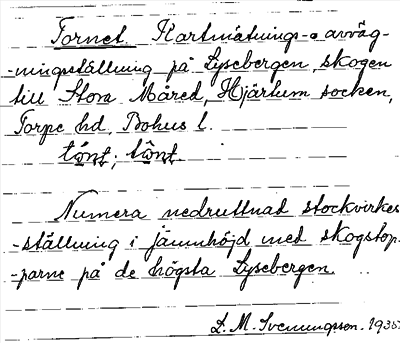 Tornet Kartmätnings- o avväg-
-ningsställning på Lysebergen, skogen
till Stora Måred, Hjärtum socken,
Torpe hd, Bohus l.
Numera nedruttnad stockvirkes
-ställning i jämnhöjd med skogstop-
-parne på de högsta Lysebergen.
L. M. Svenungsson. 1935